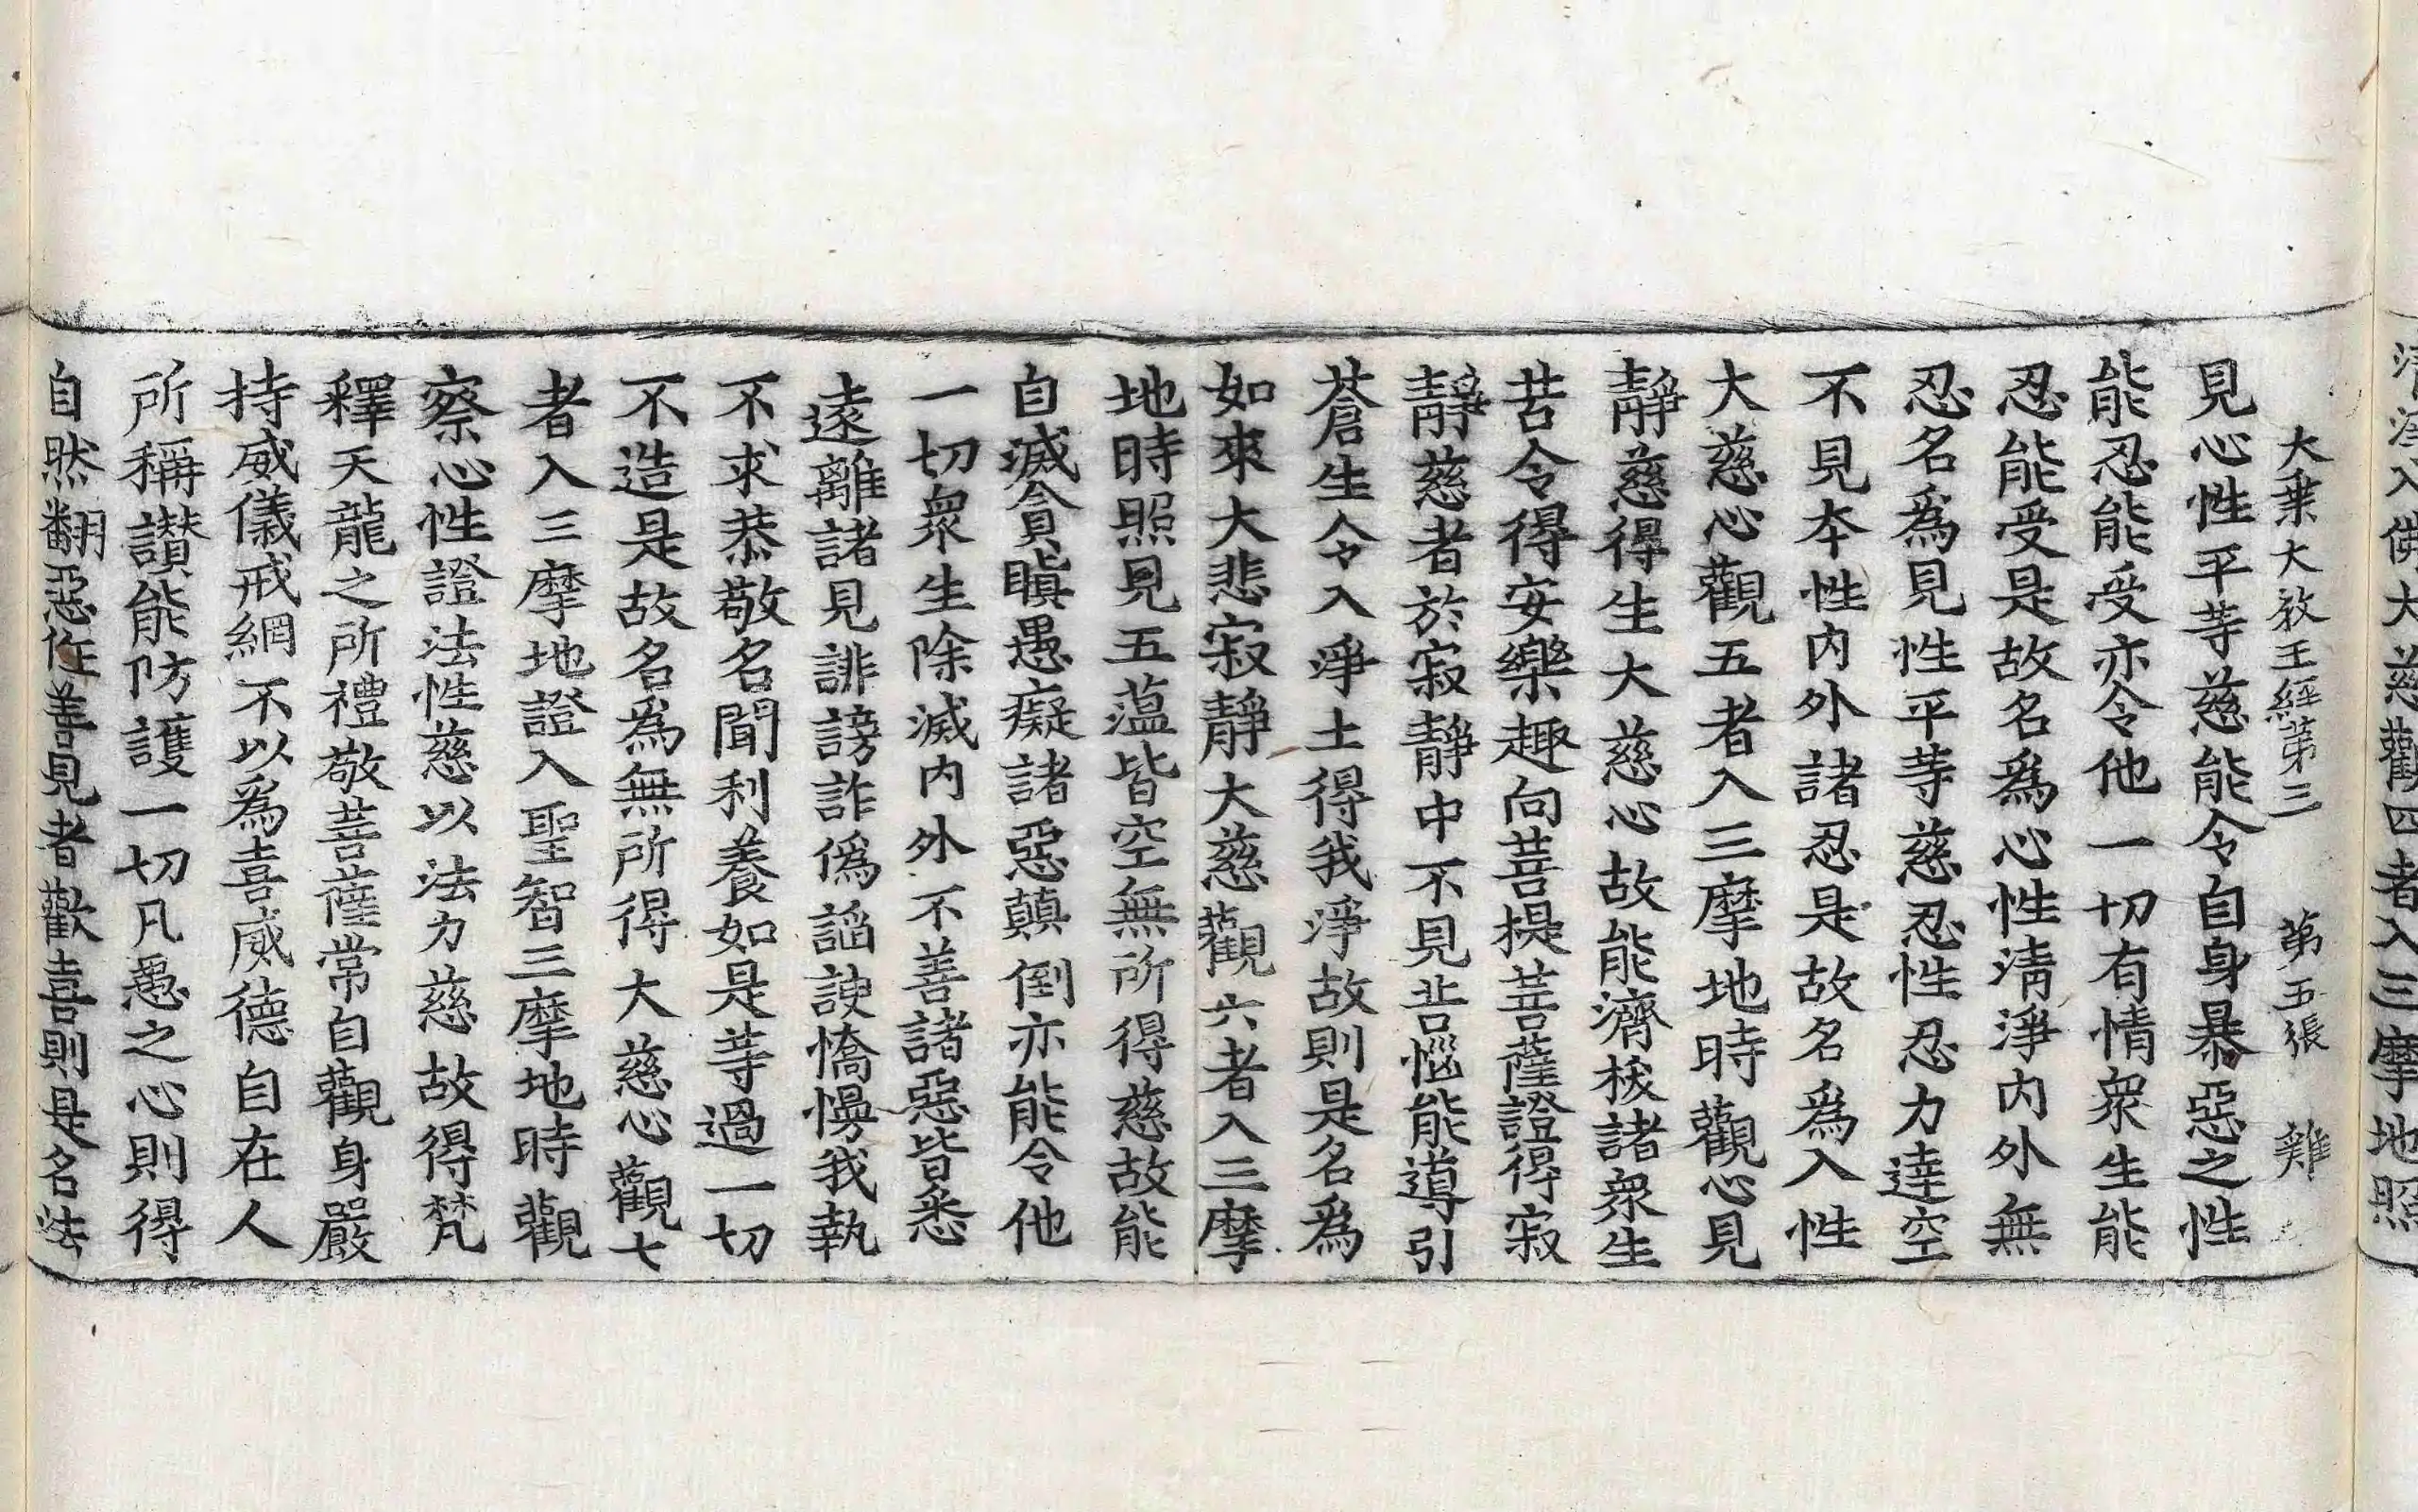 清淨入佛大慈觀四者入三摩地照
大乗大教王經苐三 苐五張 雞
見心性平等慈能令自身暴惡之性
能忍能受亦令他一切有情衆生能
忍能受是故名爲心性清淨內外無
忍名爲見性平等慈忍性忍力達空
不見本性內外諸忍是故名爲入性
大慈心觀五者入三摩地時觀心見
靜慈得生大慈心故能濟拔諸衆生
苦令得安樂趣向菩提菩薩證得寂
靜慈者於寂靜中不見苦惱能導引
蒼生令入淨土得我淨故則是名爲
如來大悲寂靜大慈觀六者入三摩
地時照見五蕰皆空無所得慈故能
自滅貪瞋愚癡諸惡顛倒亦能令他
一切衆生除滅內外不善諸惡皆悉
遠離諸見誹謗詐僞謟諛憍慢我執
不求恭敬名聞利養如是等過一切
不造是故名爲無所得大慈心觀七
者入三摩地證入聖智三摩地時觀
察心性證法性慈以法力慈故得梵
釋天龍之所禮敬菩薩常自觀身嚴
持威儀戒網不以爲喜威德自在人
所稱讃能防護一切凡愚之心則得
自然翻惡性善見者歡喜則是名法